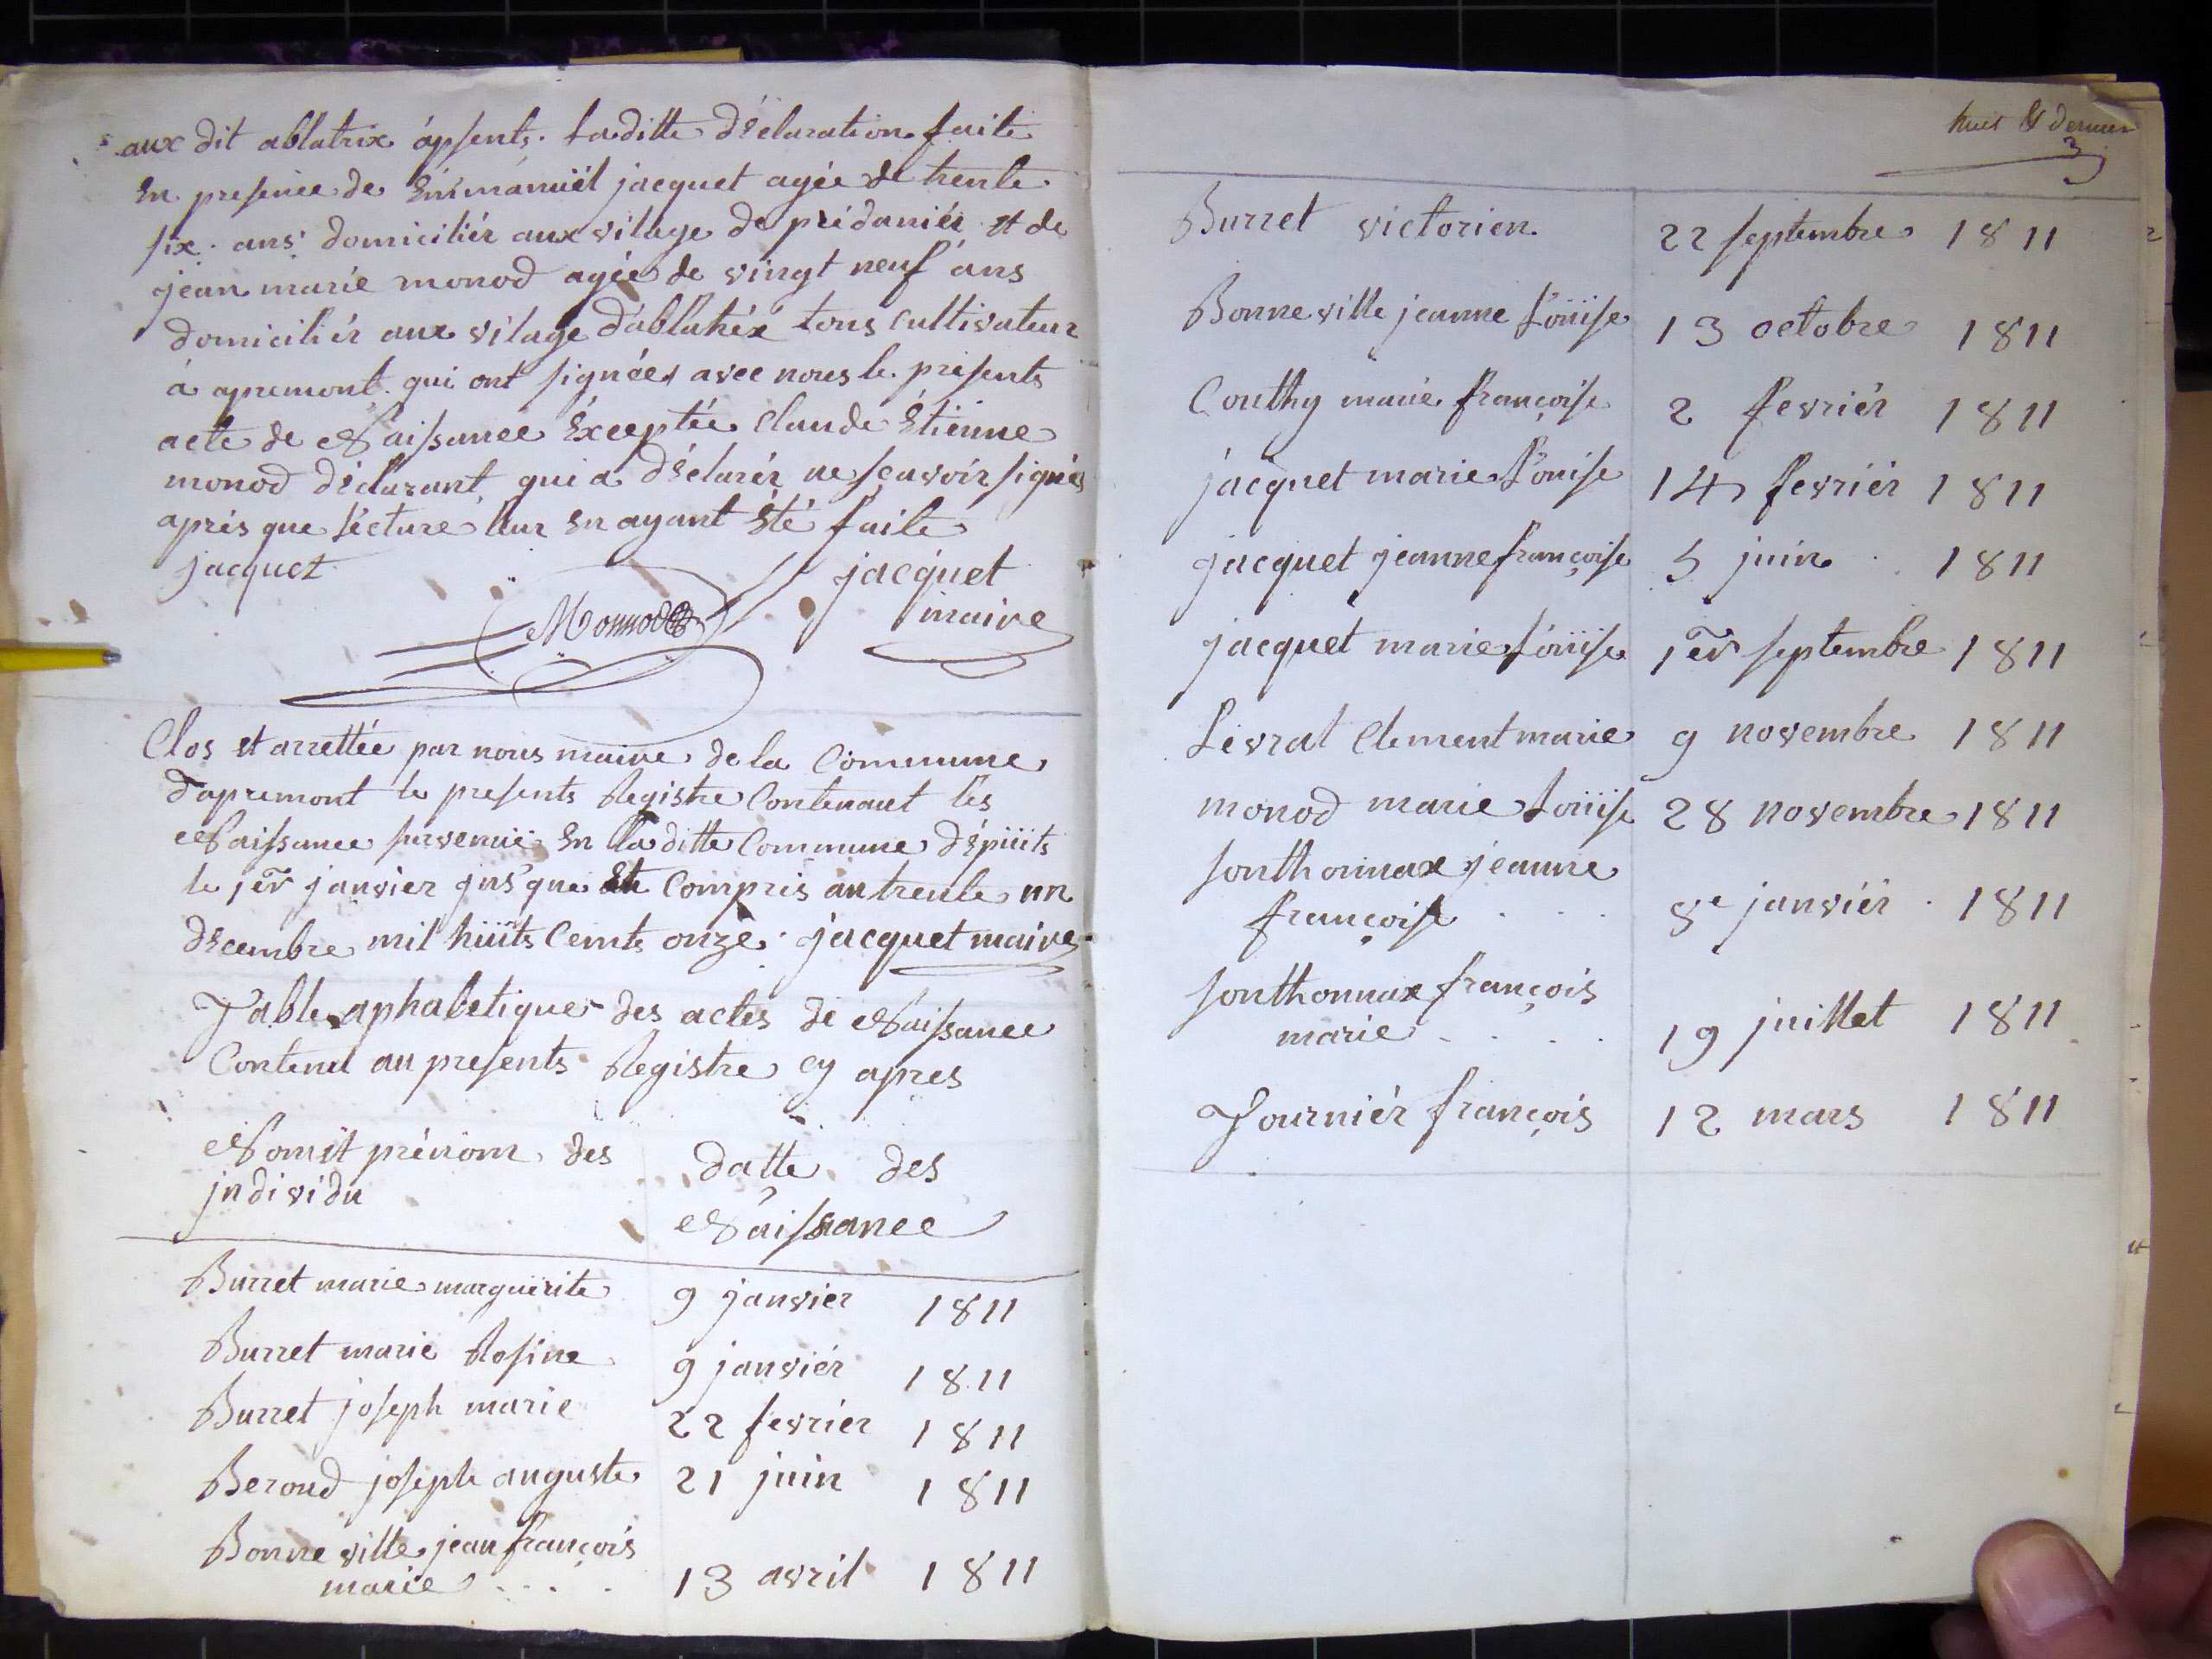 aux dit ablatrix apsents. laditte déclaration faite
En presence de Emmanuiël jacquet agée de trente
six. ans domiciliér aux vilage de prédaniér et de
jean marie monod agée de vingt neuf ans
domiciliér aux vilage d'ablatrix tous cultivateur
à apremont qui ont signées avec nous le présents
acte de Naissance Exceptée Claude Étienne
monod déclarant qui a déclarér ne scavoir signés
après que lécture leur En ayant Eté faite
jacquet
Monnod
jacquet
maire
Clos et arrettée par nous maire de la Commune
d'apremont le presents Registre Contenant lés
Naissance survenue En laditte Commune dépüits
le 1er janvier jusque et Compris au trente un
décembre mil hüits Cents onze. jacquet maire
Table aphabetique des actes dé Naissance
Contenut au presents Registre cy apres
Nom et prénom des
jndividu
datte des
Naissance
Burret marie marguerite 9 janvier 1811
Burret marie Rosine 9 janviér 1811
Burret joseph marie 22 fevrier 1811
Beroud joseph auguste 21 juin 1811
Bonneville jean françois
marie . . . . 13 avril 1811
huit & dernier
Burret victorien 22 septembre 1811
Bonneville jeanne Loüise 13 octobre 1811
Couthy marie françoise 2 fevriér 1811
jacquet marie Louise 14 fevriér 1811
jacquet jeanne françoise 5 juin 1811
jacquet marie Loüise 1er septembre 1811
Lévrat Clement marie 9 novembre 1811
monod marie Loüise 28 novembre 1811
Sonthonnax jeanne
françoise . . . 8e janviér . 1811
Sonthonnax françois
marie . . . . 19 juillet 1811
Tourniér françois 12 mars 1811